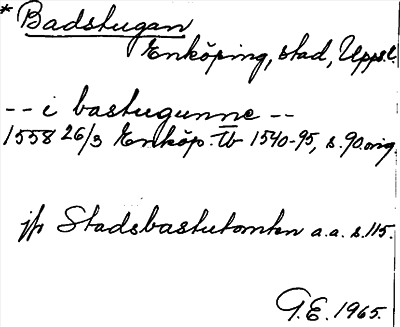 * Badstugan
Enköping, stad, Upps.l.
-- i bastugunne --
1558 26/3 Enköp. Tb 1540-95, s. 90. orig.
jfr Stadsbastutomten a.a. s. 115.
G.E. 1965.